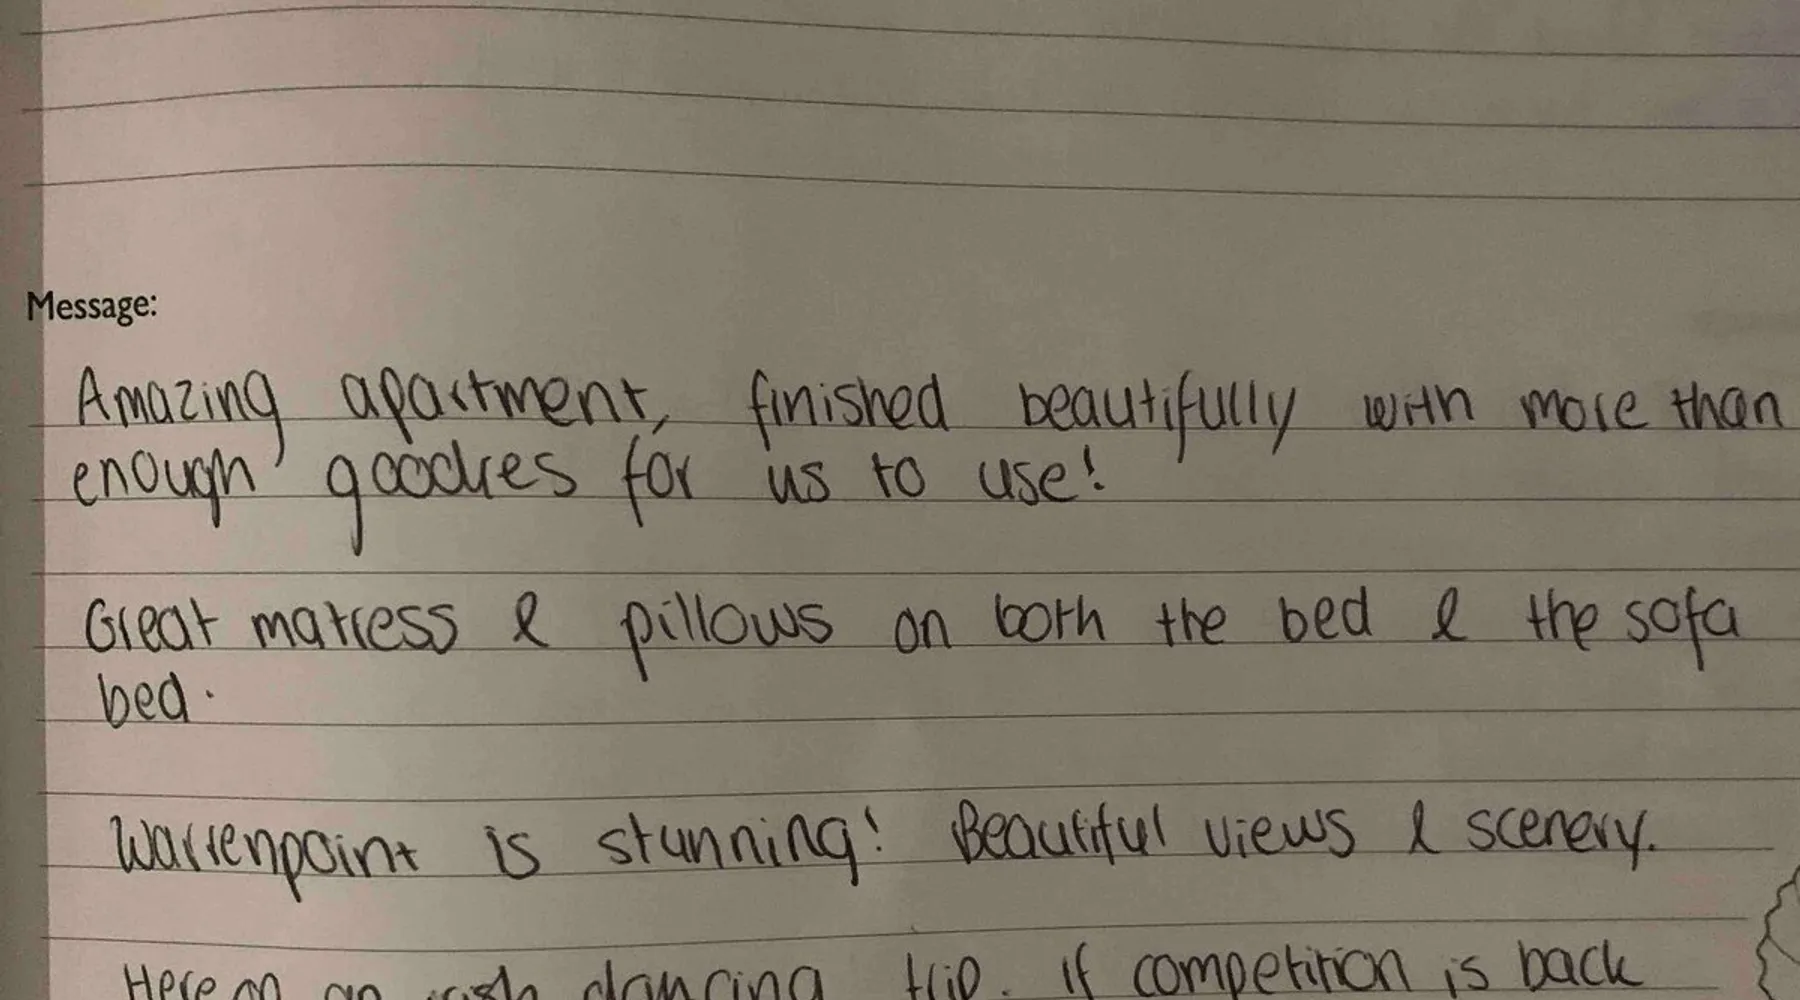 Message:
Amazing apartment, finished beautifully with more than
enough goodies for us to use!
Great matress & pillows on both the bed & the sofa
bed.
Warrenpoint is stunning! Beautiful views & scenery.
Here on an irish dancing trip. If competition is back